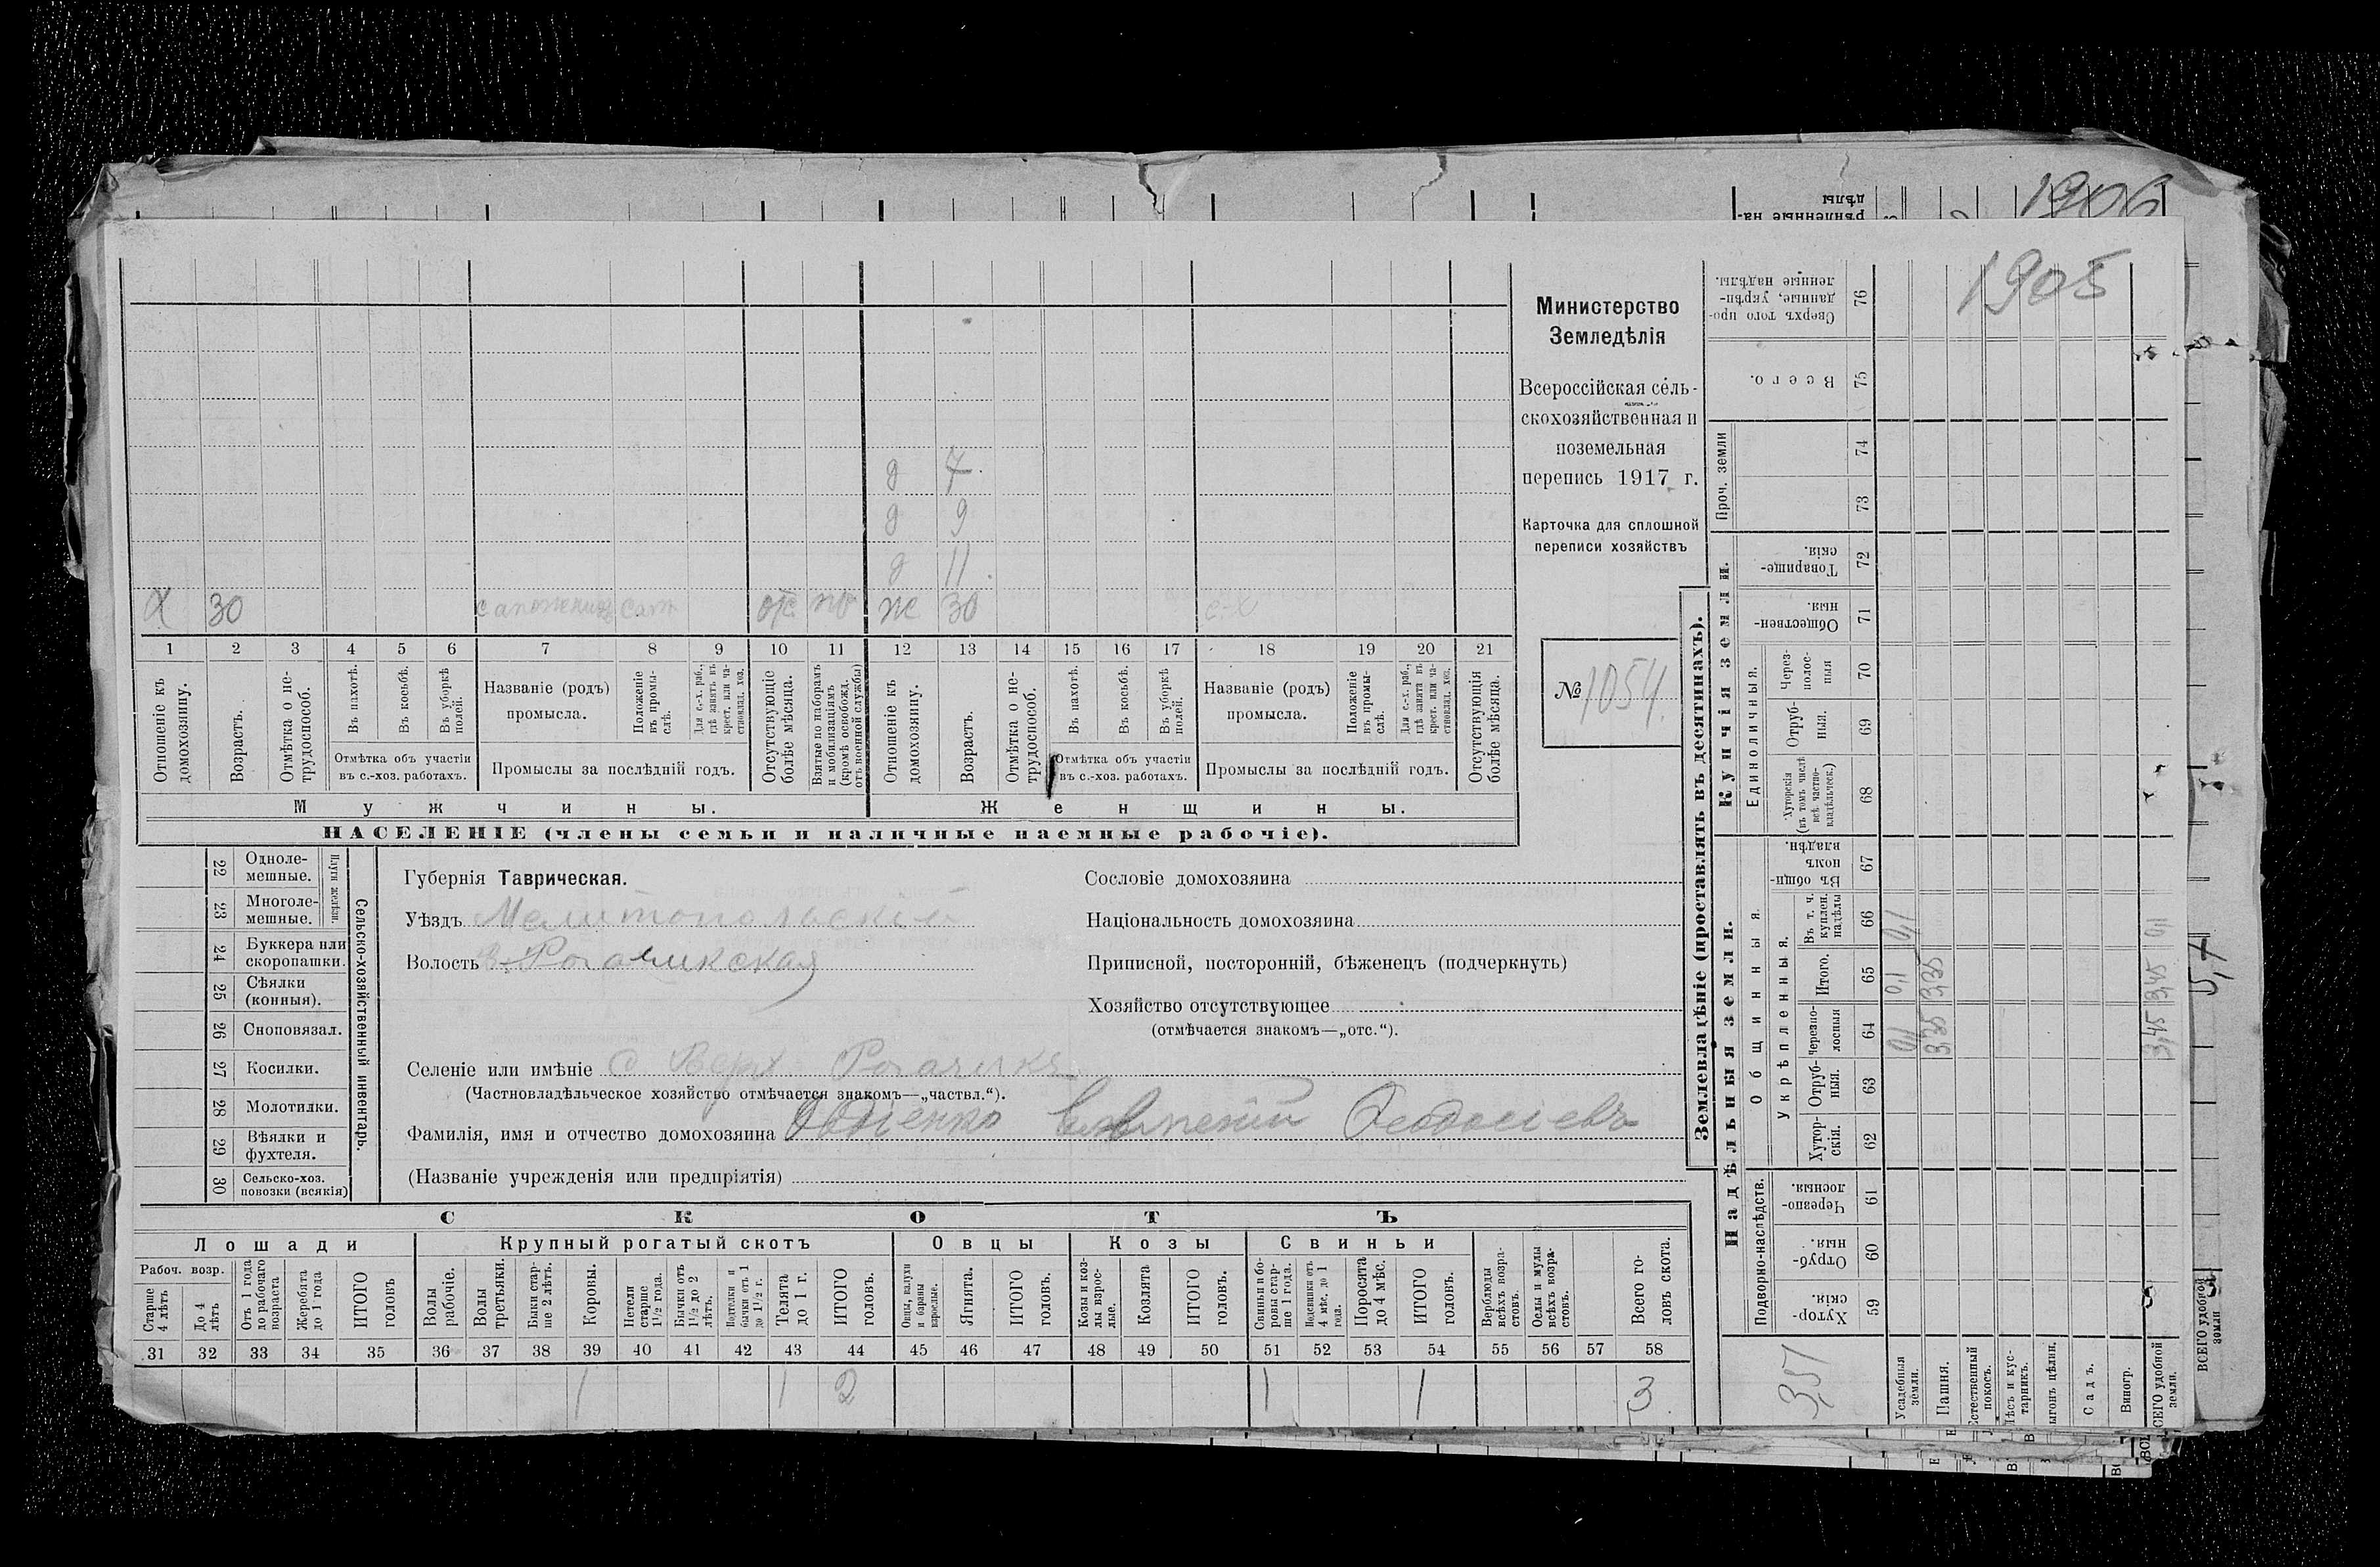 1906
1905
д 7
д 9
д 11
х 30 сапожник сам отс мо ж 30 с-х
1 2 3 4 5 6 7 8 9 10 11 12 13 14 15 16 17 18 19 20 21
Отношеніе къ домохозяину.
Возрастъ.
Отмѣтка о нетрудоспособ.
Въ пахотѣ.
Въ косьбѣ.
Въ уборкѣ полей.
Отмѣтка объ участіи
въ с.-хоз. работахъ.
Названіе (родъ)
промысла.
Положеніе въ промыслѣ.
Для с.-х. раб., гдѣ занятъ въ крест. или частновлад. хоз.
Промыслы за послѣдній годъ.
Отсутствующіе болѣе мѣсяца.
Взятые по наборамъ и мобилизаціямъ (кромѣ освобожд. отъ военной службы)
Отношеніе къ домохозяину.
Возрастъ.
Отмѣтка о нетрудоспособ.
Въ пахотѣ.
Въ косьбѣ.
Въ уборкѣ полей.
Отмѣтка объ участіи
въ с.-хоз. работахъ.
Названіе (родъ)
промысла.
Положеніе въ промыслѣ.
Для с.-х. раб., гдѣ занята въ крест. или частновлад. хоз.
Промыслы за послѣдній годъ.
Отсутствующія болѣе мѣсяца.
Мужчины. Женщины.
НАСЕЛЕНІЕ (члены семьи и наличные наемные рабочіе).
Министерство
Земледѣлія
Всероссійская сель-
скохозяйственная и
поземельная
перепись 1917 г.
Карточка для сплошной
переписи хозяйствъ
№ 1054.
22 Одноле-
мешные.
23 Многоле-
мешные.
Плуги желѣзн.
24 Буккера или
скоропашки.
25 Сѣялки
(конныя).
26 Сноповязал.
27 Косилки.
28 Молотилки.
29 Вѣялки и
фухтеля.
30 Сельско-хоз.
повозки (всякія)
Сельско-хозяйственный инвентарь.
Губернія Таврическая.
Уѣздъ Мелитопольскій
Волость В-Рогачикская
Селеніе или имѣніе с Верх Рогачикъ
(Частновладѣльческое хозяйство отмѣчается знакомъ—„частвл.“).
Фамилія, имя и отчество домохозяина Авдіенко Евлампій Ѳеодосіевъ
(Названіе учрежденія или предпріятія)
Сословіе домохозяина
Національность домохозяина
Приписной, посторонній, бѣженецъ (подчеркнуть)
Хозяйство отсутствующее
(отмѣчается знакомъ—„отс.“).
СКОТЪ
Лошади Крупный рогатый скотъ Овцы Козы Свиньи
Рабоч. возр.
Старше 4 лѣтъ
До 4 лѣтъ
Отъ 1 года до рабочаго возраста
Жеребята до 1 года
ИТОГО головъ
Волы рабочіе.
Волы третьяки.
Быки старше 2 лѣтъ.
Коровы.
Нетели старше 1½ года.
Бычки отъ 1½ до 2 лѣтъ.
Подтелки и бычки отъ 1 до 1½ г.
Телята до 1 г.
ИТОГО головъ.
Овцы, валухи и бараны взрослые.
Ягнята.
ИТОГО головъ.
Козы и козлы взрослые.
Козлята
ИТОГО головъ.
Свиньи и боровы старше 1 года.
Подсвинки отъ 4 мѣс. до 1 года.
Поросята до 4 мѣс.
ИТОГО головъ.
Верблюды всѣхъ возрастовъ.
Ослы и мулы всѣхъ возрастовъ.
Всего головъ скота.
31 32 33 34 35 36 37 38 39 40 41 42 43 44 45 46 47 48 49 50 51 52 53 54 55 56 57 58
1 1 2 1 1 3
Землевладѣніе (проставлять въ десятинахъ).
Надѣльныя земли. Купчія земли.
Подворно-наслѣдств.
Общинныя.
Укрѣпленныя.
Единоличныя.
Проч. земли
Хуторскія 59
Отрубныя. 60
Черезполосныя. 61
Хуторскія. 62
Отрубныя. 63
Черезполосныя 64
Итого. 65
Въ т. ч. куплен. надѣлы 66
Въ общиномъ владѣн. 67
Хуторскія (въ томъ числѣ всѣ частновладѣльческ.) 68
Отрубныя. 69
Черезполосныя 70
Общественныя. 71
Товарищескія. 72
73
74
Всего. 75
Сверхъ того проданные, укрѣпленные надѣлы. 76
357
Усадебныя земли. 0,1 0,1 0,1
Пашня. 3,35 3,35
Естественный покосъ.
Лѣсъ и кустарникъ.
Выгонъ цѣлин.
Садъ.
Виногр.
ВСЕГО удобной земли. 3,45 3,45 0,1
ВСЕГО удобной земли